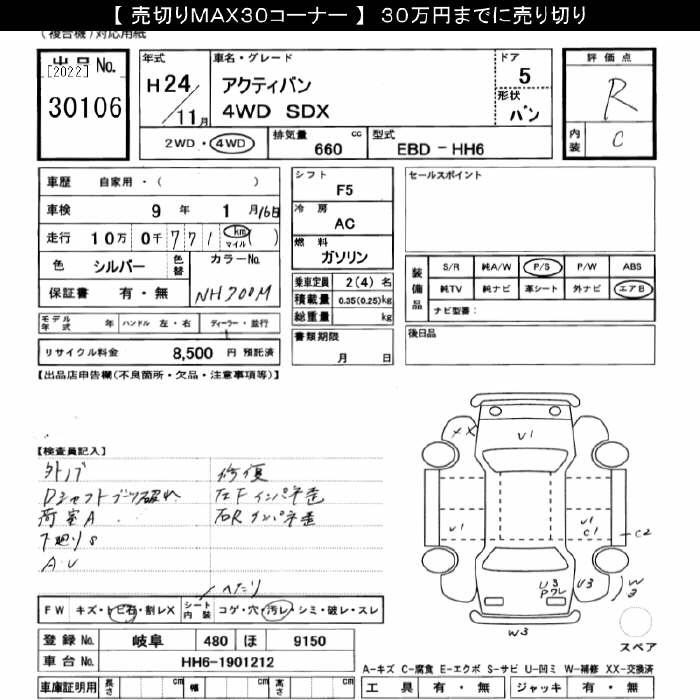 【 売切りMAX30コーナー 】 30万円までに売り切り
(複合機)対応用紙
出品No.
[2022]
30106
年式
H24/11月
車名・グレード
アクティバン
4WD SDX
ドア
5
形状
バン
評価点
R
内装
C
2WD・4WD
排気量
660 cc
型式
EBD-HH6
車歴 自家用・( )
車検 9年 1月16日
走行 10万 0千 771 km マイル ( )
色 シルバー 色替 カラーNo.
NH700M
保証書 有・無
モデル年式 年 ハンドル 左・右 ディーラー・並行
リサイクル料金 8,500 円 預託済
シフト
F5
冷房
AC
燃料
ガソリン
乗車定員 2(4) 名
積載量 0.35(0.25)kg
総重量 kg
書類期限
月 日
セールスポイント
装備品
S/R 純A/W P/S P/W ABS
純TV 純ナビ 革シート 外ナビ エアB
ナビ型番:
後日品
【出品店申告欄(不良箇所・欠品・注意事項等)】
【検査員記入】
外ノブ
Dシャフトブーツ破れ
荷室A
下廻りS
A.U
修復
左Fインパネ歪
右Rインパネ歪
XX
V1
V1
U1
C1
C2
U3
Pワレ
U3
W3
W3
スペア
へたり
FW キズ・トビ石・割レX シート内装 コゲ・穴・汚レ・シミ・破レ・スレ
登録No. 岐阜 480 ほ 9150
車台No. HH6-1901212
車庫証明用 長さ 幅 高さ
A-キズ C-腐食 E-エクボ S-サビ U-凹ミ W-補修 XX-交換済
工具 有・無 ジャッキ 有・無